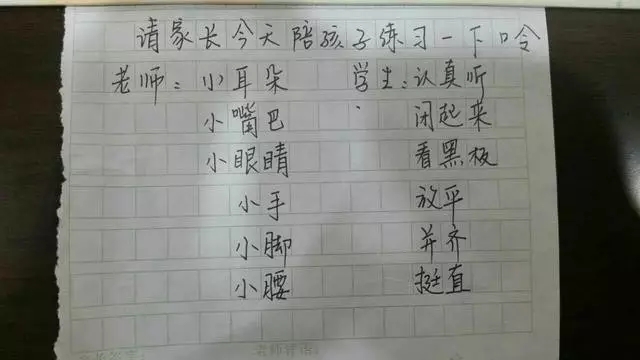 请家长今天陪孩子练习一下呤
老师：小耳朵 学生：认真听
小嘴巴 闭起来
小眼睛 看黑板
小手 放平
小脚 并齐
小腰 挺直